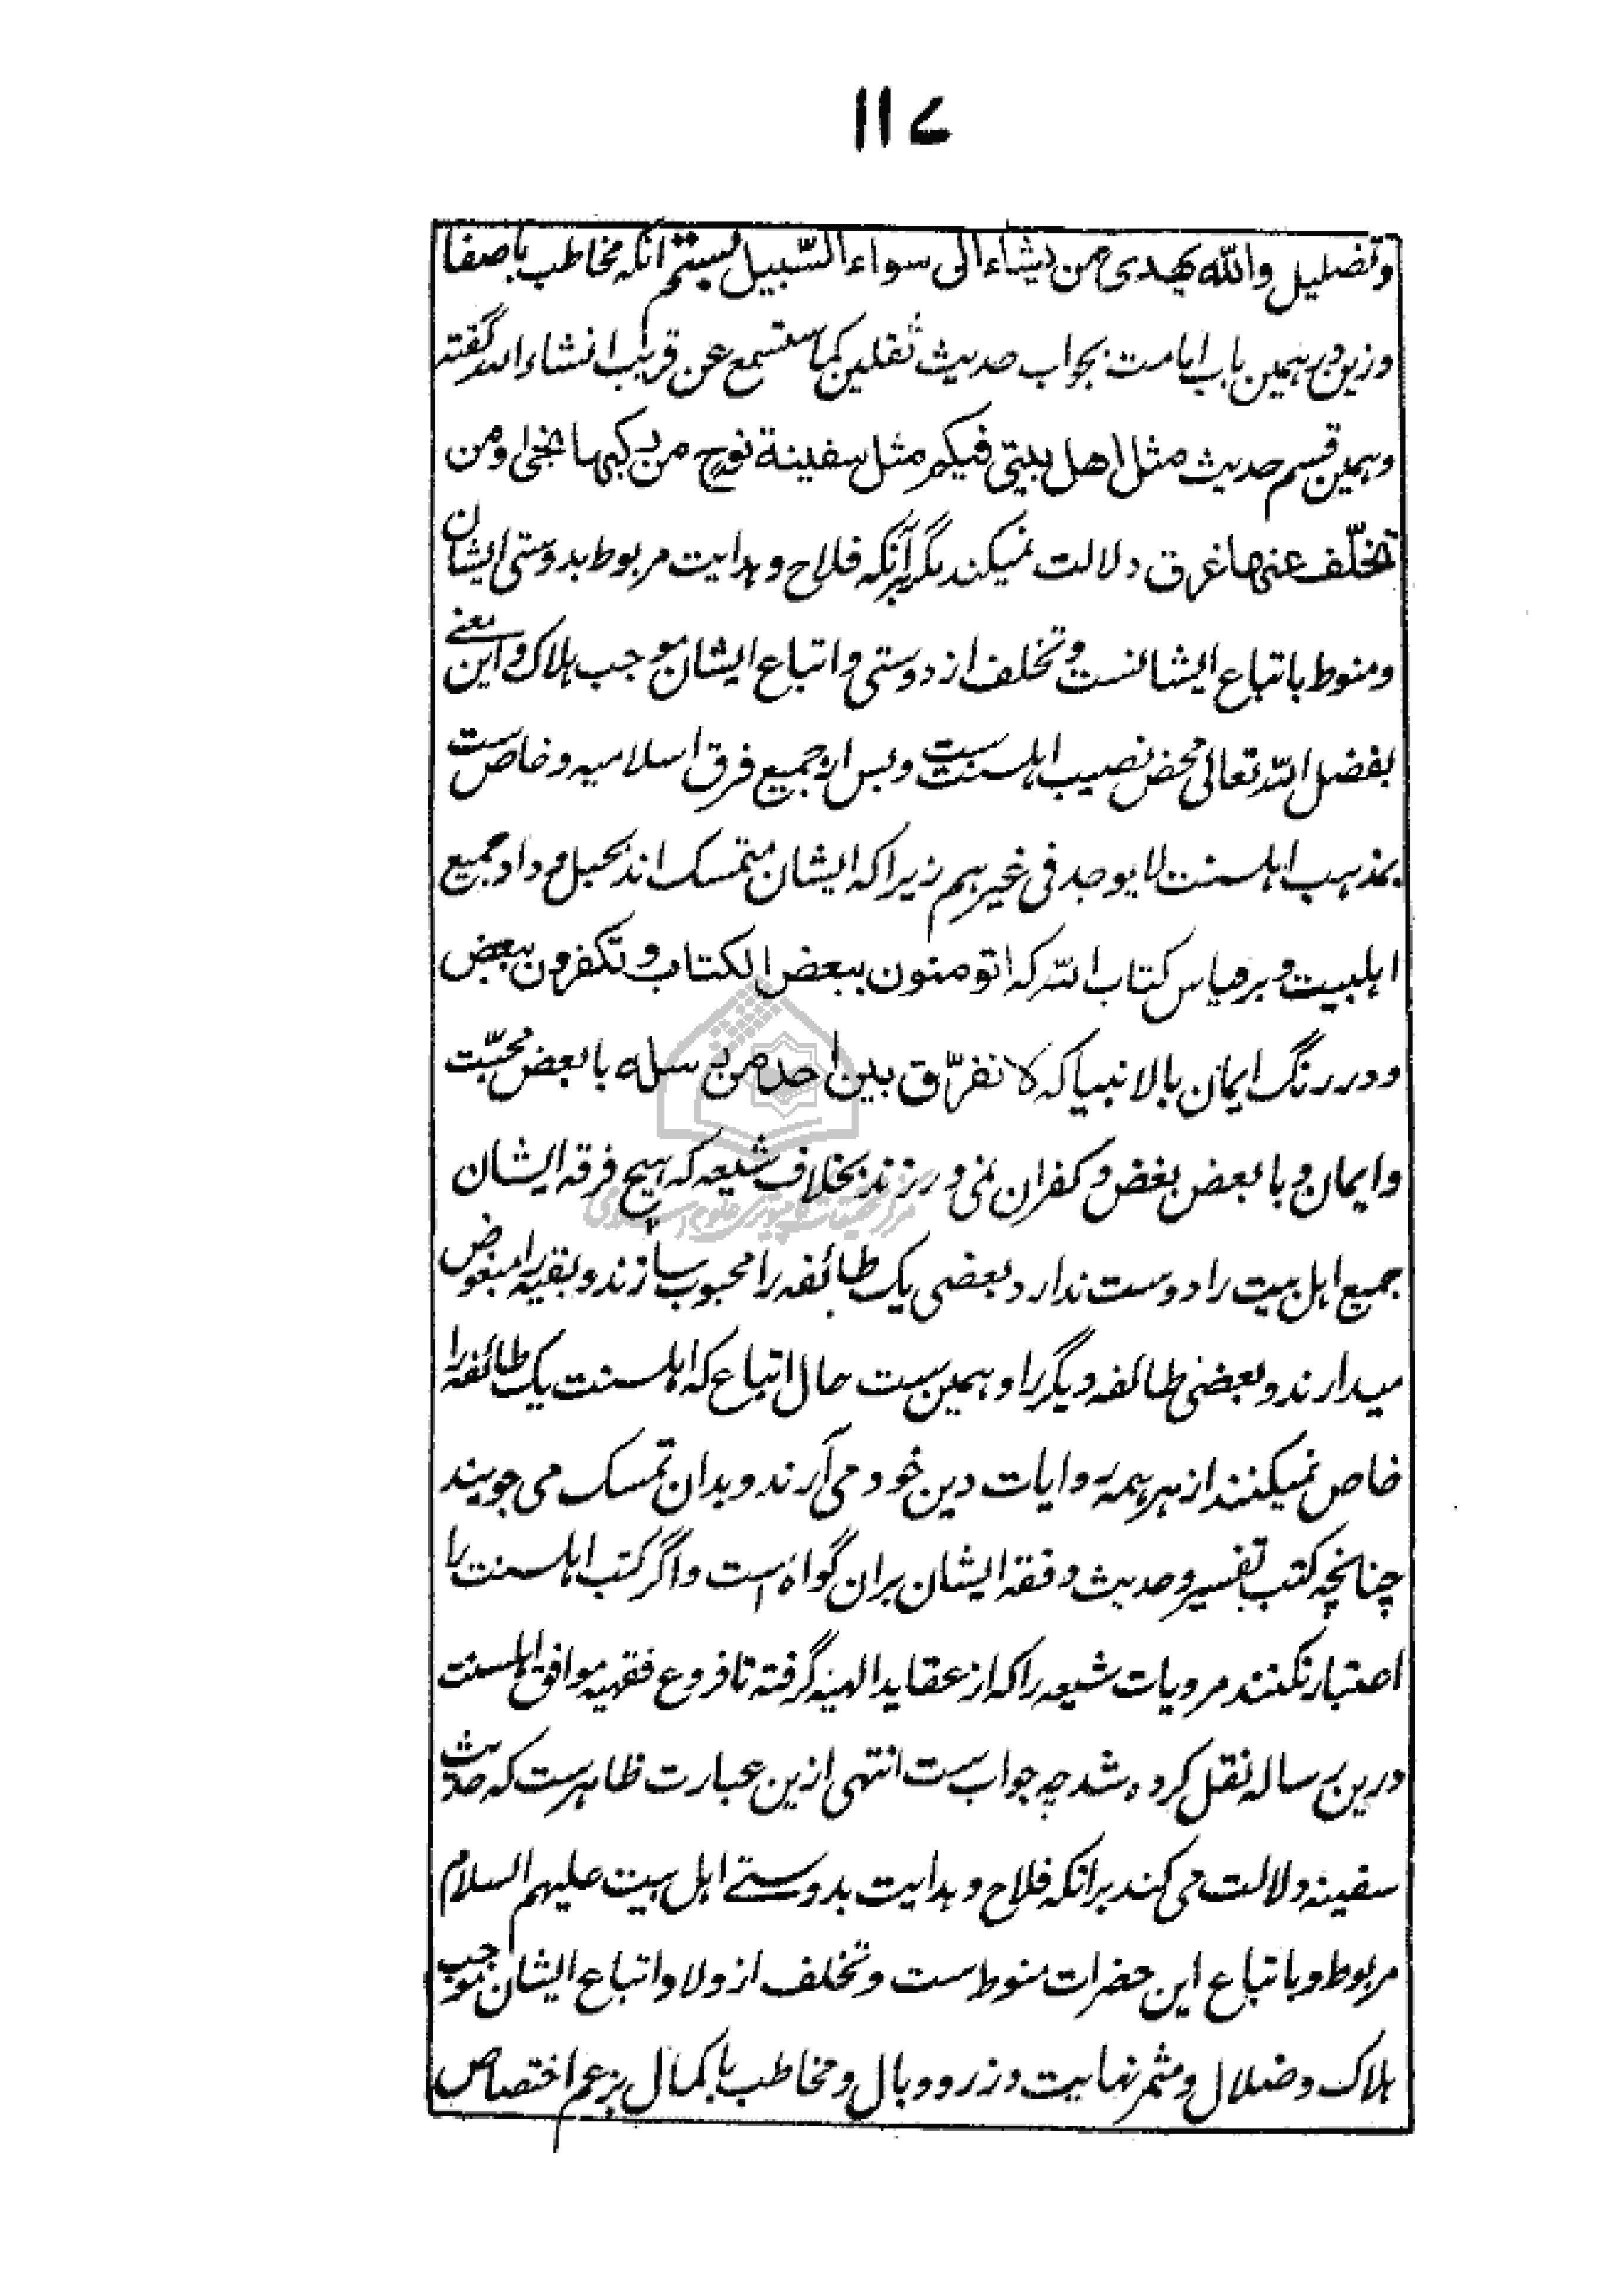 ۱۱۷
و تضلیل والله یهدی من یشاء الی سواء السّبیل بستم آنکه مخاطب باصفا
و زین در همین باب امامت بجواب حدیث ثقلین کما ستسمع عن قریب انشاء الله گفته
و همین قسم حدیث مثل اهل بیتی فیکم مثل سفینة نوح من رکبها نجی و من
تخلّف عنها غرق دلالت نمیکند مگر بر آنکه فلاح و هدایت مربوط بدوستی ایشان
و منوط باتباع ایشانست و تخلف از دوستی و اتباع ایشان موجب هلاک و این معنے
بفضل الله تعالی محض نصیب اهلسنت ست و بس از جمیع فرق اسلامیه و خاص ست
بمذهب اهلسنت لا یوجد فی غیرهم زیرا که ایشان متمسک اند بحبل وداد جمیع
اهلبیت و بر قیاس کتاب الله که اتومنون ببعض الکتاب و تکفرون ببعض
و در رنگ ایمان بالانبیا که لا نفرّق بین احد من رسله با بعض محبّت
و ایمان و با بعض بغض و کفران نمی ورزند بخلاف شیعه که هیچ فرقه ایشان
جمیع اهل بیت را دوست ندارد بعضی یک طائفه را محبوب سازند و بقیه را مبغوض
میدارند و بعضی طائفه دیگر را و همین ست حال اتباع که اهلسنت یک طائفه را
خاص نمیکنند از هر همه روایات دین خود می آرند و بدان تمسک می جویند
چنانچه کتب تفسیر و حدیث و فقه ایشان بران گواه است و اگر کتب اهلسنت را
اعتبار نکنند مرویات شیعه را که از عقاید الهیه گرفته تا فروع فقهیه موافق اهلسنت
درین رساله نقل کرده شد چه جواب ست انتهی ازین عبارت ظاهرست که حدیث
سفینه دلالت می کند برانکه فلاح و هدایت بدوستے اهل بیت علیهم السلام
مربوط و باتباع این حضرات منوط ست و تخلف از ولا و اتباع ایشان موجب
هلاک و ضلال و مثمر نهایت وزر و وبال و مخاطب باکمال بزعم اختصاص